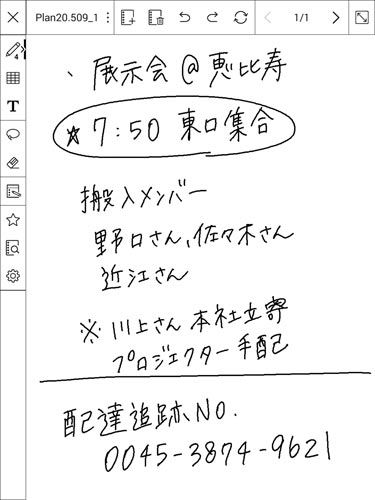 Plan20.509_1
1/1
4
T
、展示会@恵比寿
☆7:50 東口集合
搬入メンバー
野口さん、佐々木さん
近江さん
※川上さん 本社立寄
プロジェクター手配
配達追跡NO.
0045-3874-9621